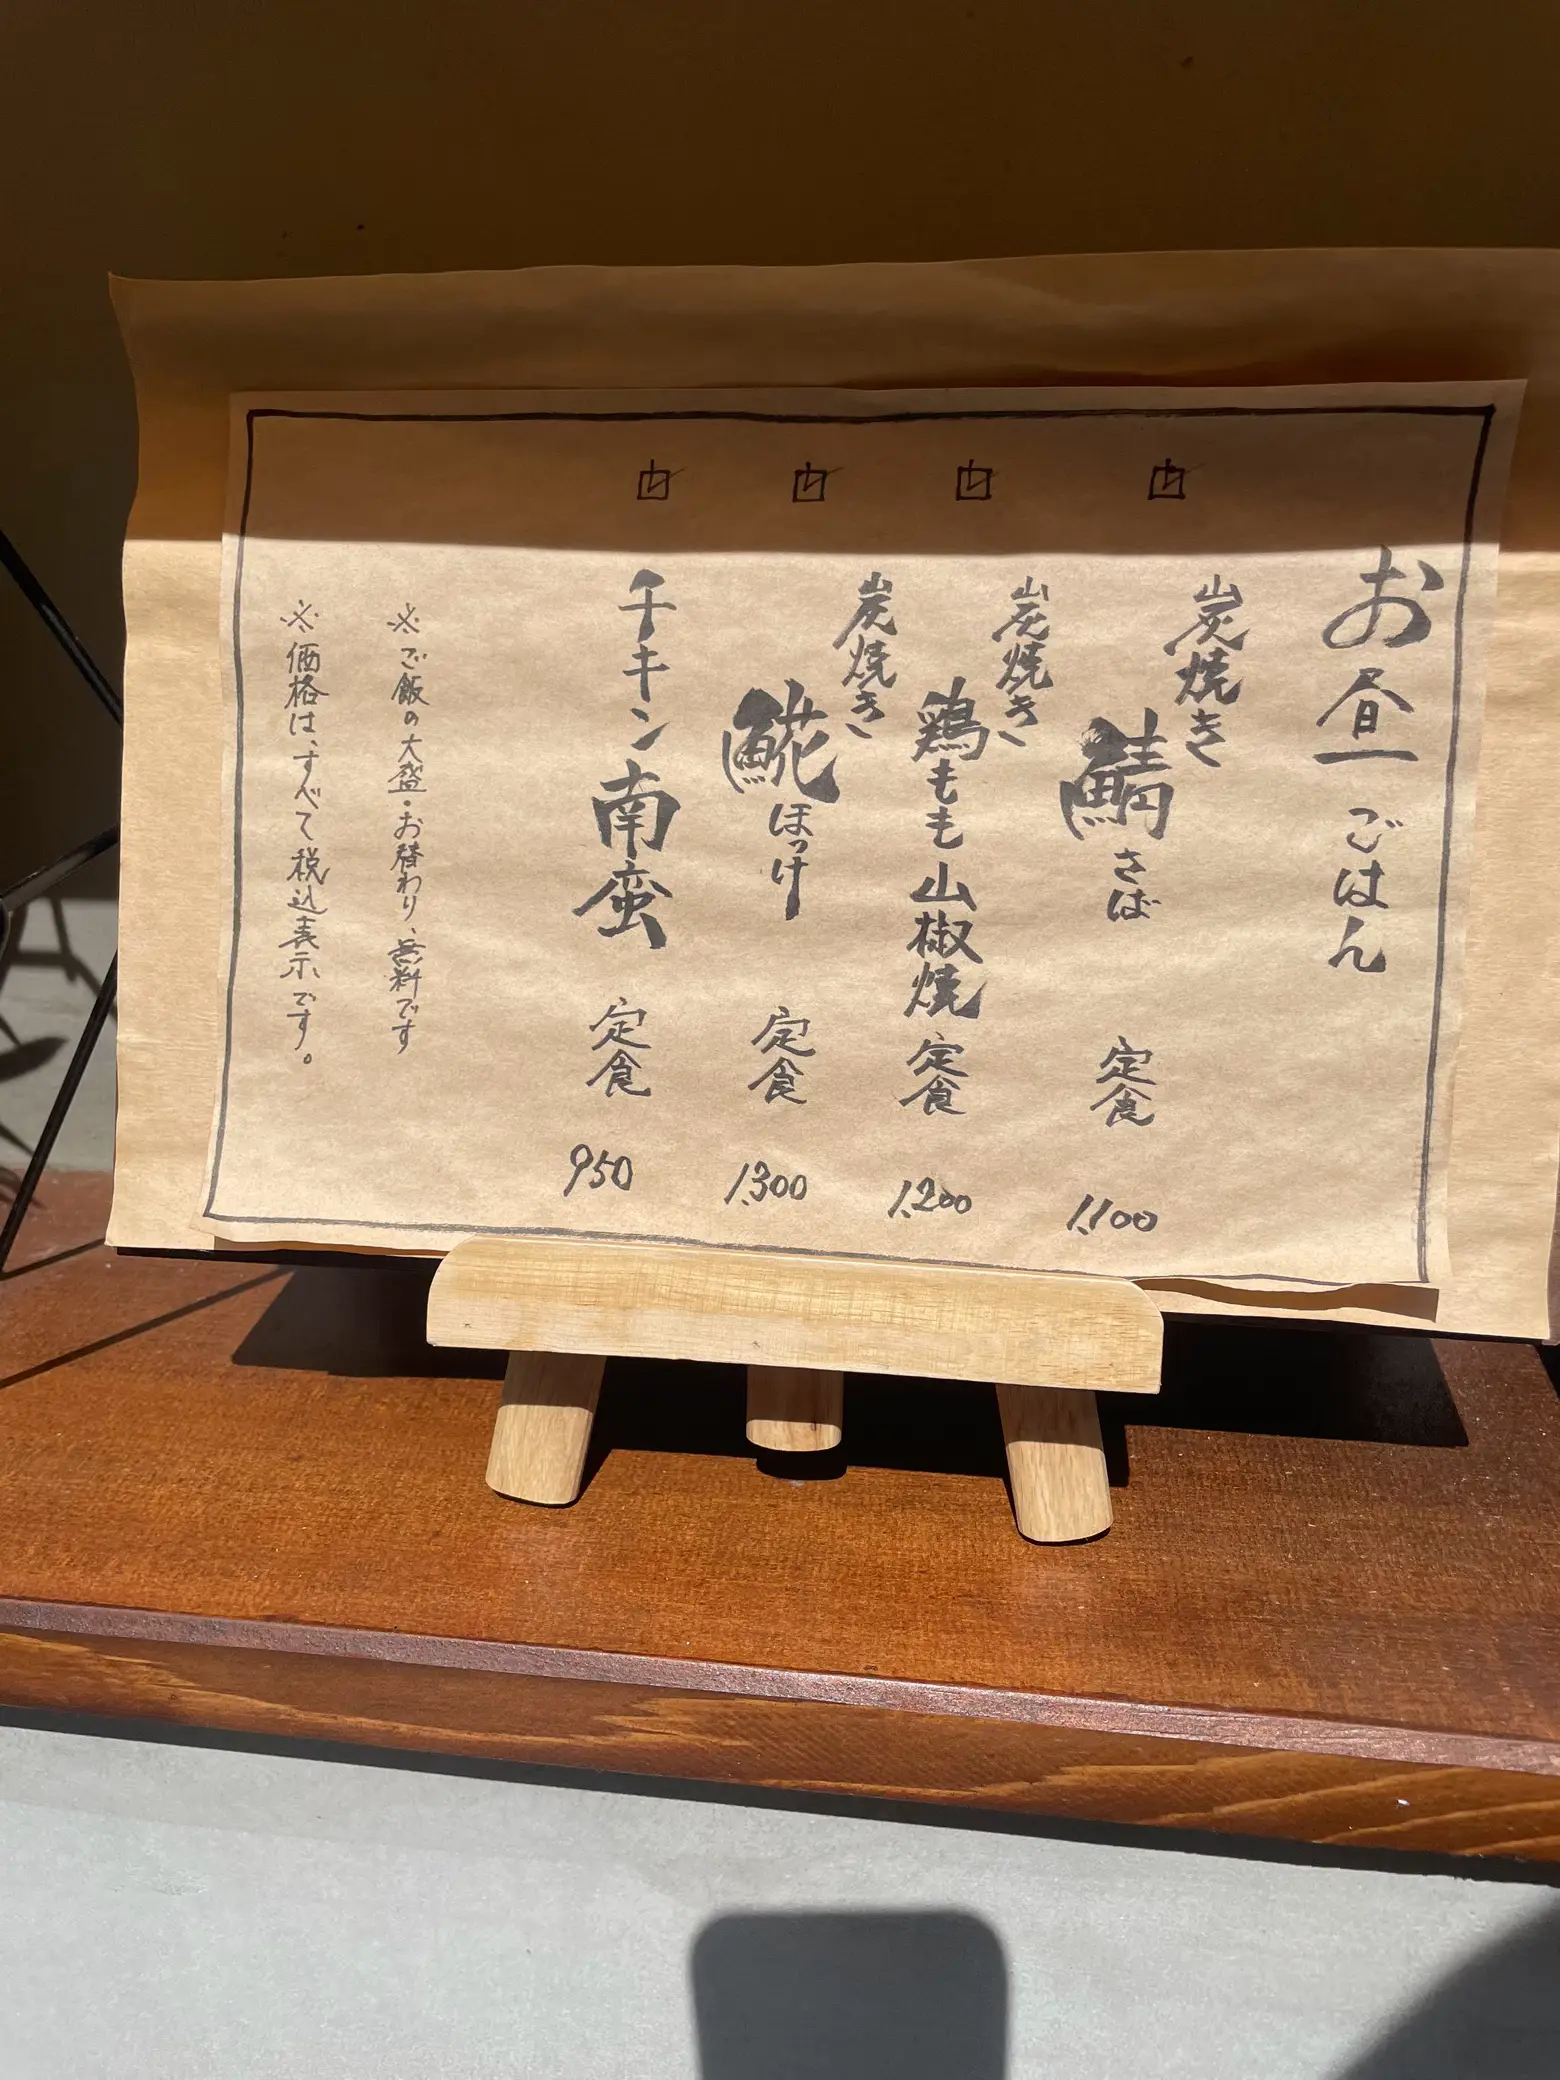 お昼ごはん
炭焼き 鯖 さば 定食 1,100
炭焼き 鶏もも山椒焼 定食 1,200
炭焼き 𩸽 ほっけ 定食 1,300
チキン南蛮 定食 950
※ご飯の大盛・お替わり、無料です
※価格は、すべて税込表示です。